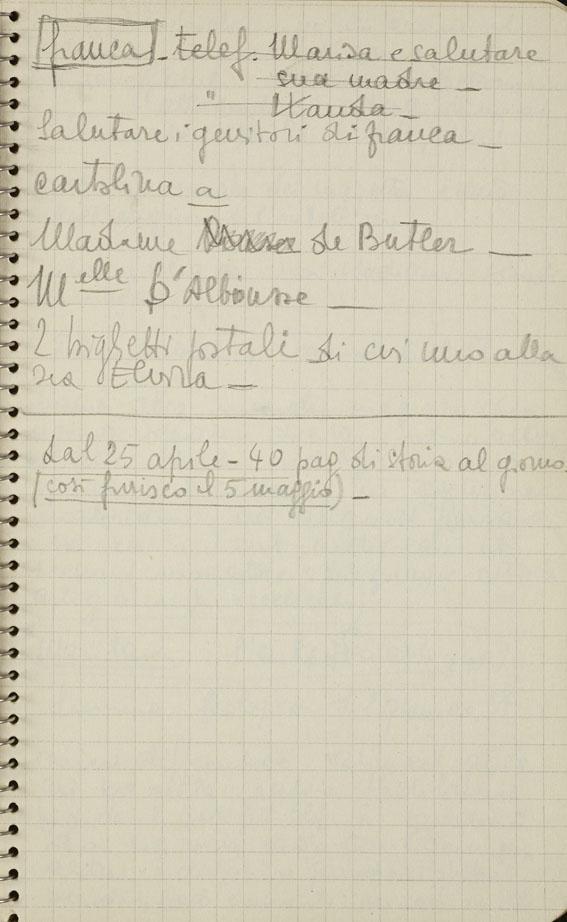 franca - telef. Marisa e salutare
sua madre -
" Wanda -
Salutare i genitori di franca -
cartolina a
Madame de Butler -
Melle D'Albousse -
2 biglietti postali di cui uno alla
zia Elvira -
dal 25 aprile - 40 pag di storia al giorno
(così finisco il 5 maggio) -